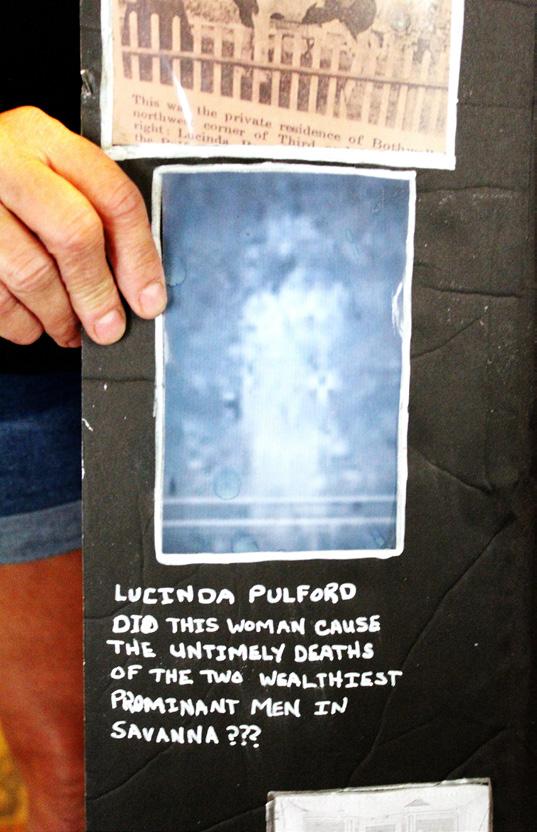 This was the private residence of Bothw
northwest corner of Third
right: Lucinda
LUCINDA PULFORD
DID THIS WOMAN CAUSE
THE UNTIMELY DEATHS
OF THE TWO WEALTHIEST
PROMINANT MEN IN
SAVANNA ???